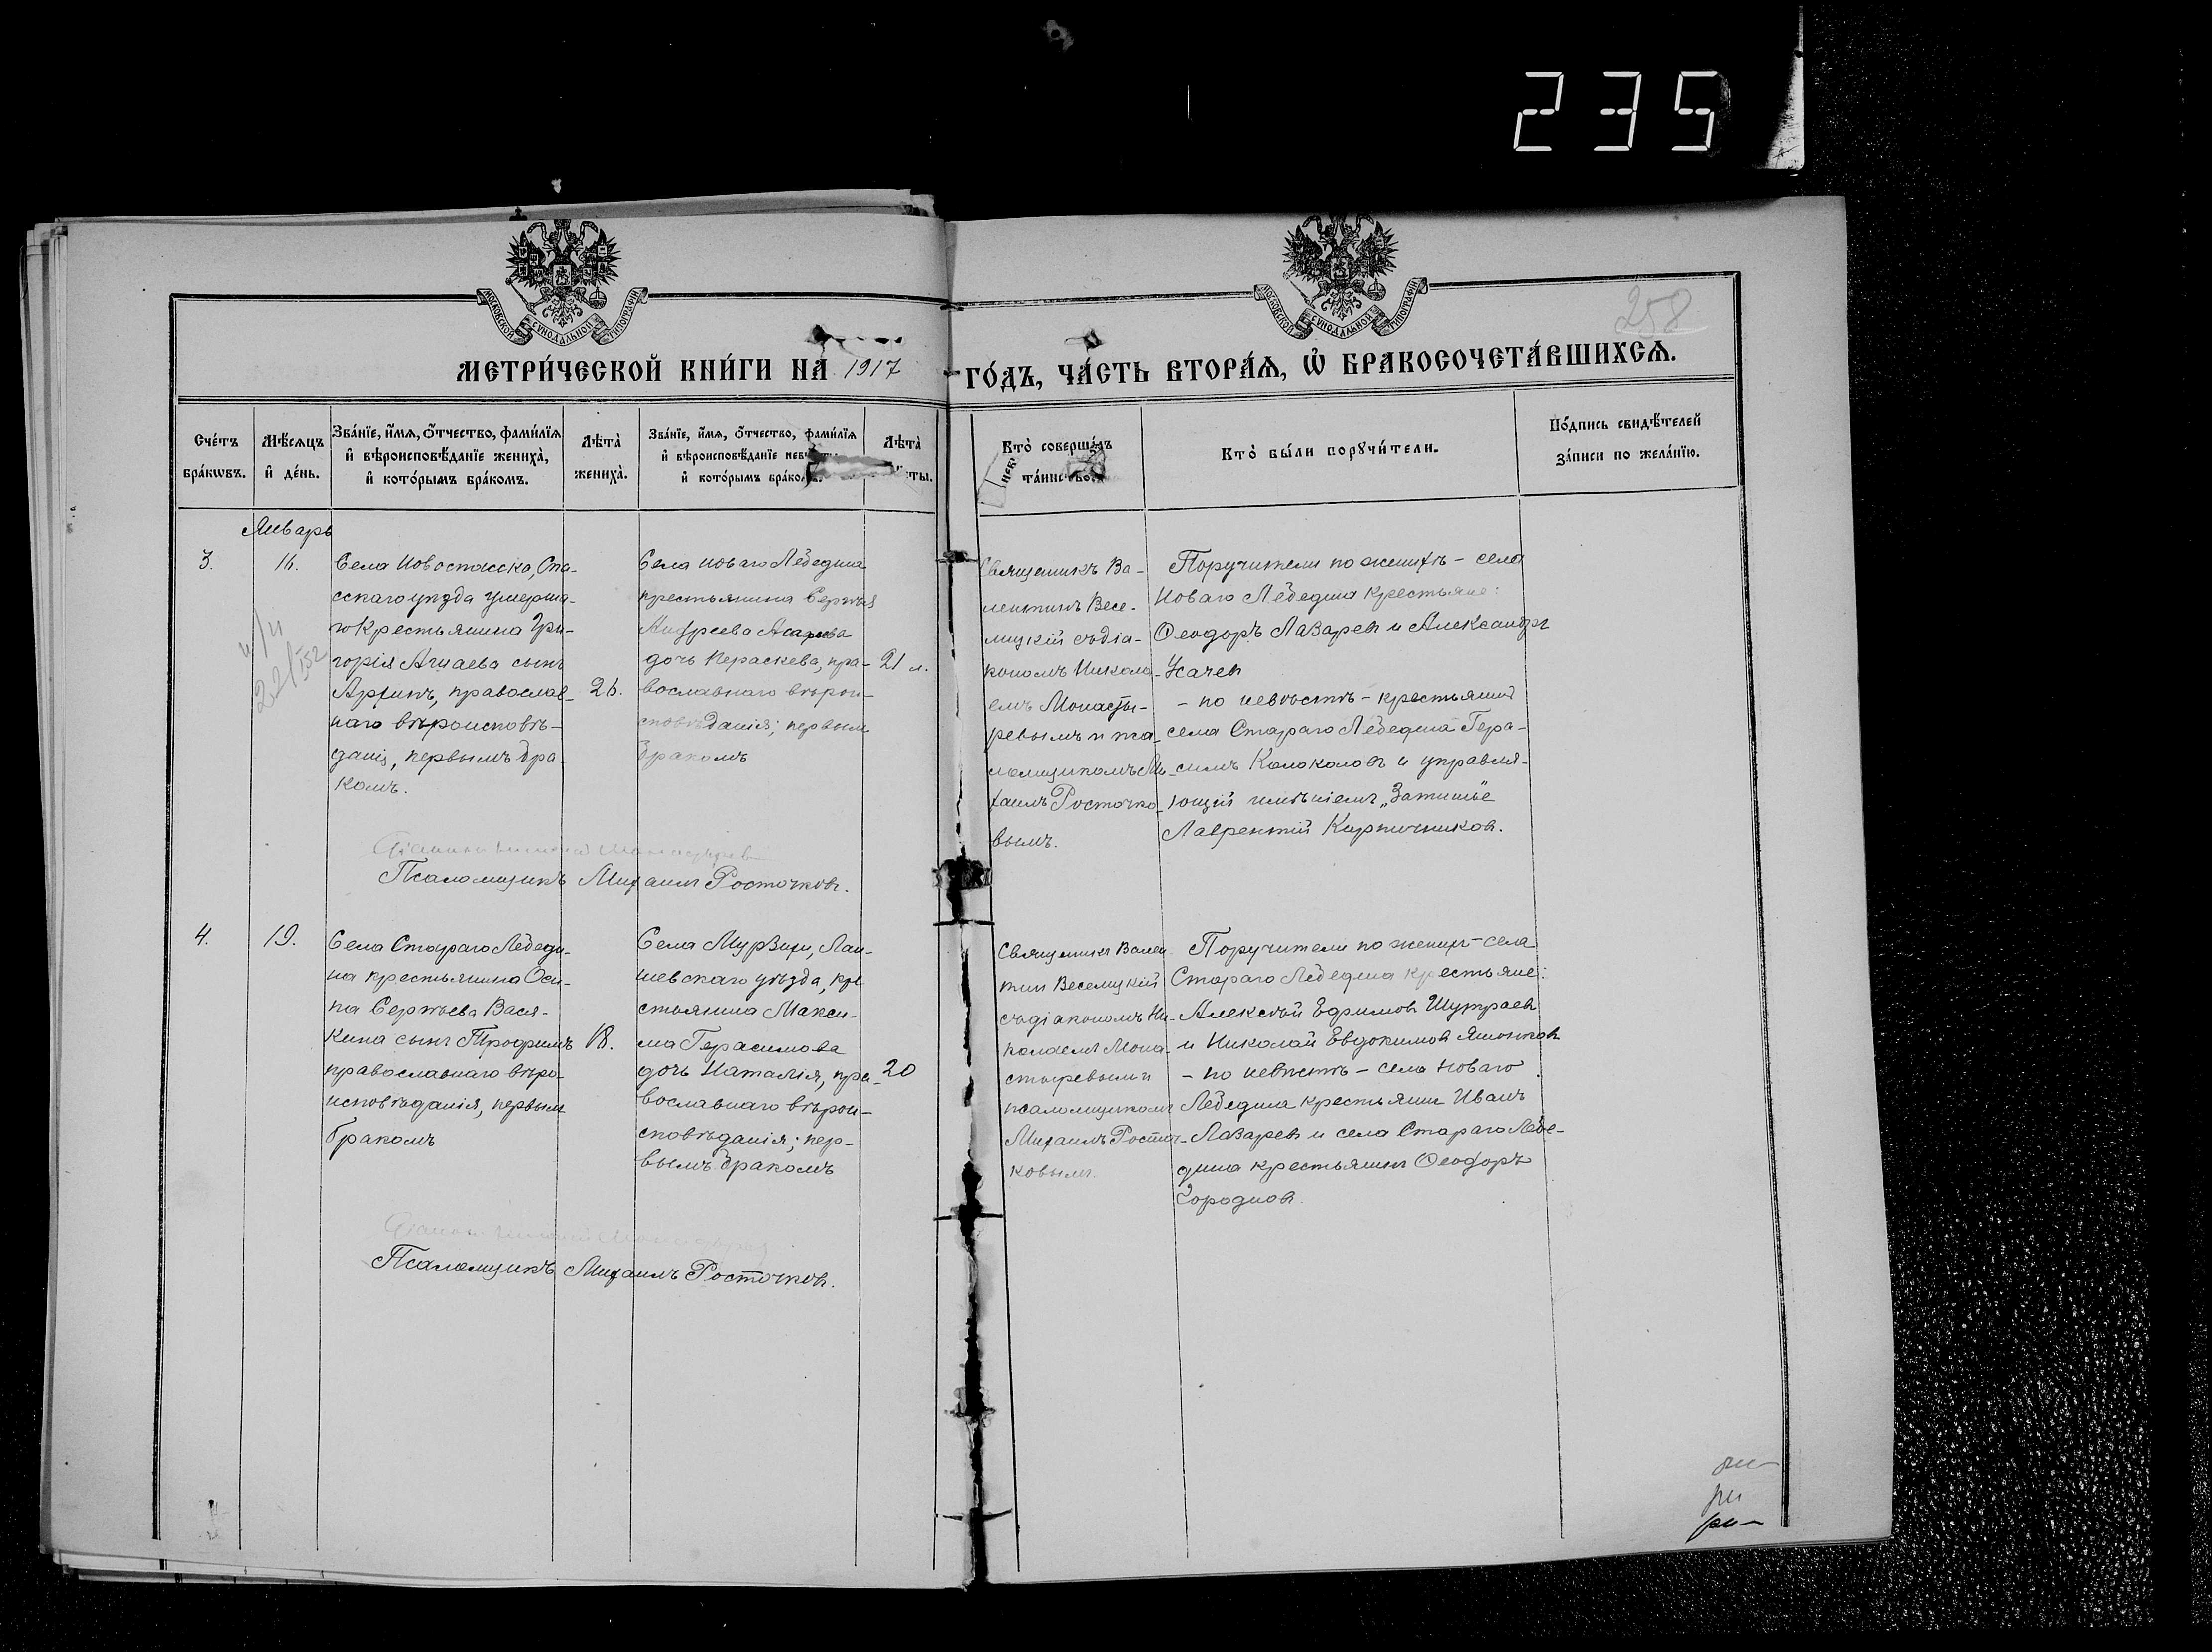 235
МОСКОВСКОЙ СѴНОДАЛЬНОЙ ТИПОГРАФІИ
МОСКОВСКОЙ СѴНОДАЛЬНОЙ ТИПОГРАФІИ
258
МЕТРИ́ЧЕСКОЙ КНИ́ГИ НА 1917 ГО́ДЪ, ЧА́СТЬ ВТОРА́Ѧ, Ѡ БРАКОСОЧЕТА́ВШИХСѦ.
Сче́тъ
бра́кѡвъ.
Мѣ́сѧцъ
и҆ де́нь.
Зва́нїе, и҆́мѧ, ѻ҆́тчество, фами́лїѧ
и҆ вѣроисповѣ́данїе жениха̀,
и҆ кото́рымъ бра́комъ.
Лѣта̀
жениха̀.
Зва́нїе, и҆́мѧ, ѻ҆́тчество, фами́лїѧ
и҆ вѣроисповѣ́данїе
и҆ кото́рымъ бра́комъ.
Лѣта̀
Кто̀ соверша́лъ
та́инство.
Кто̀ бы́ли порꙋчи́тели.
По́дпись свидѣ́телей
за́писи по жела́нїю.
Январь
3.
16.
Села Новоспасска, Спа-
сскаго уѣзда умерша-
го крестьянина Гри-
горія Агшаева сынъ
православ-
наго вѣроисповѣ-
данія, первымъ бра-
комъ.
26.
Села новаго Лебедина
крестьянина Сергѣя
Андреева
дочь Параскева, пра-
вославнаго вѣрои-
сповѣданія; первымъ
бракомъ
21 л.
Священникъ Ва-
лентинъ Весе-
лицкій съ діа-
кономъ Никола-
емъ Монасты-
ревымъ и пса-
ломщикомъ Ми-
хаилъ Росточко-
вымъ.
Поручители по женихѣ - села
Новаго Лебедина крестьяне:
Ѳеодоръ Лазаревъ и Александръ
Усачевъ
- по невѣстѣ - крестьянинъ
села Стараго Лебедина Гера-
симъ Колоколовъ и управля-
ющій имѣніемъ „Затишье
Лаврентій Кирпичниковъ.
Псаломщикъ Михаилъ Росточковъ.
4.
19.
Села Стараго Лебеди-
на крестьянина Оси-
па Сергѣева Вася-
кина сынъ Трофимъ
православнаго вѣро-
исповѣданія, первымъ
бракомъ
18.
Села Мурзихи, Лаи-
шевскаго уѣзда, кре
стьянина Макси-
ма Герасимова
дочь Наталія, пра-
вославнаго вѣрои-
сповѣданія; пер-
вымъ бракомъ
20
Священникъ Вален
тин Веселицкій
съ діакономъ Ни-
колаемъ Мона-
стыревымъ и
псаломщикомъ
Михаилъ Росточ-
ковымъ.
Поручители по женихѣ - села
Стараго Лебедина крестьяне:
Алексѣй Ефимовъ Шутраевъ
и Николай Евдокимовъ
- по невѣстѣ - села Новаго
Лебедина крестьянин Иванъ
Лазаревъ и села Стараго Лебе-
дина крестьянинъ Ѳеодоръ
Городновъ.
Псаломщикъ Михаилъ Росточковъ.